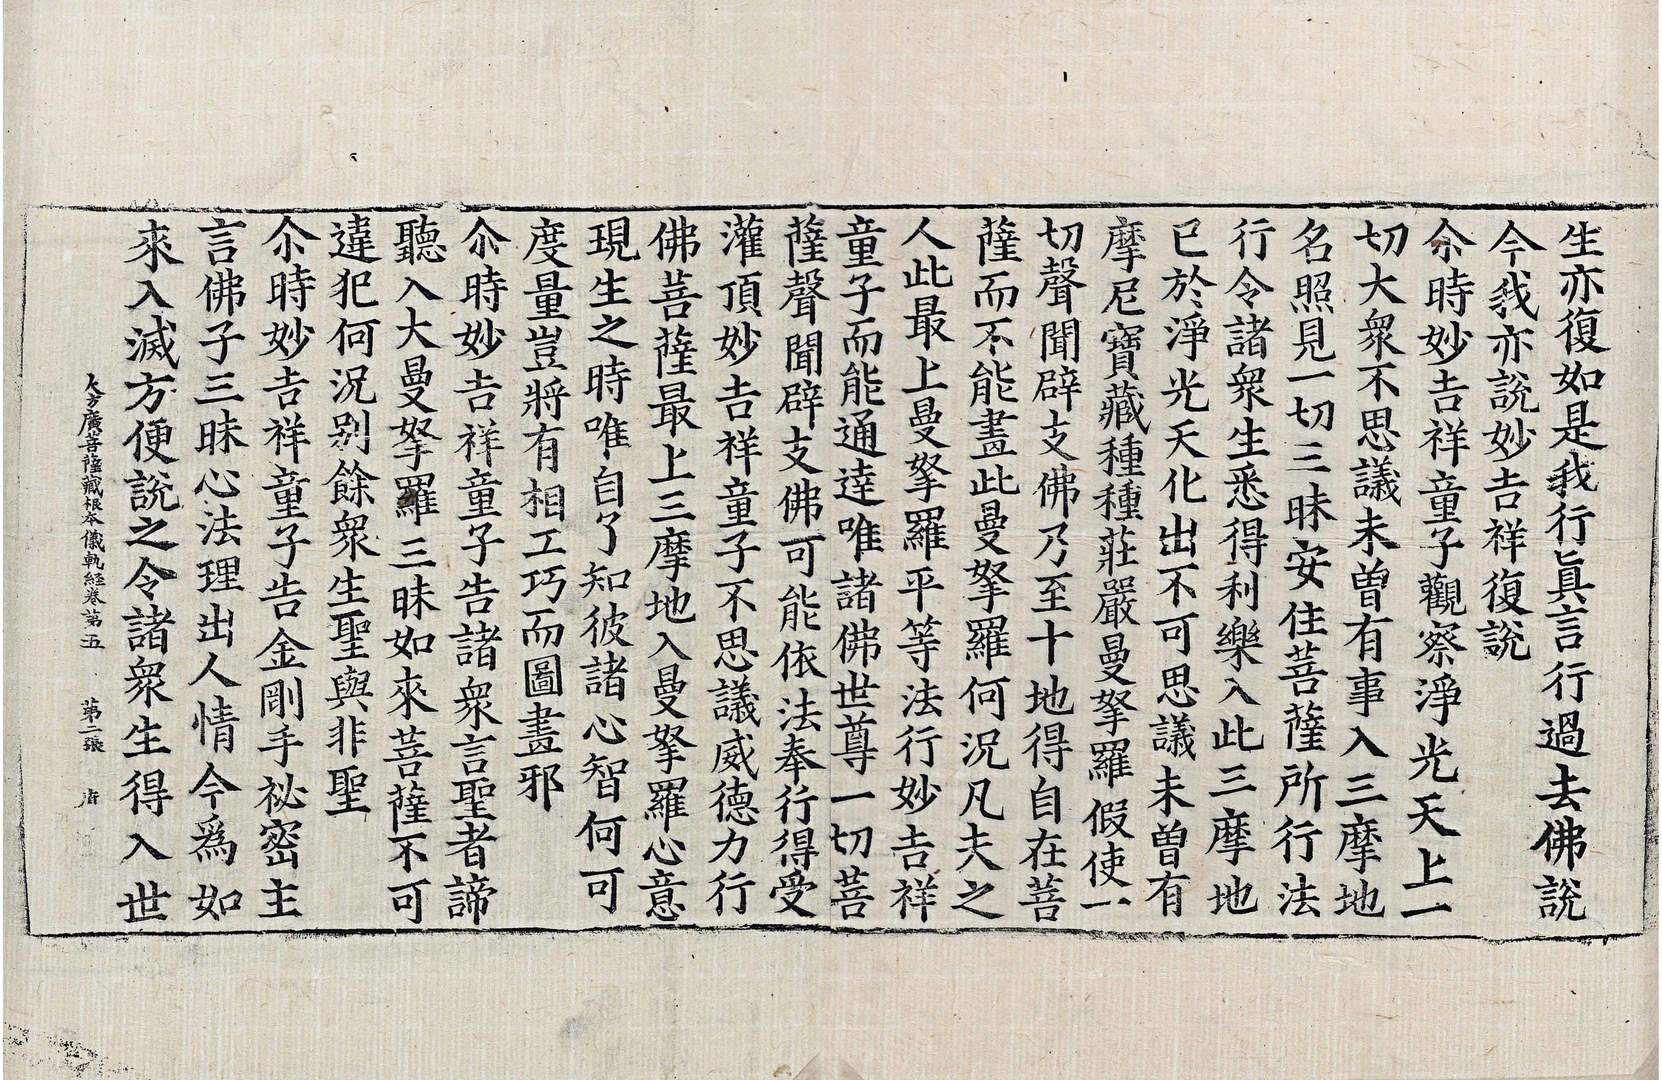 生亦復如是我行眞言行過去佛說
今我亦說妙吉祥復說
尒時妙吉祥童子觀察淨光天上一
切大衆不思議未曾有事入三摩地
名照見一切三昧安住菩薩所行法
行令諸衆生悉得利樂入此三摩地
已於淨光天化出不可思議未曾有
摩尼寶藏種種莊嚴曼拏羅假使一
切聲聞辟支佛乃至十地得自在菩
薩而不能畫此曼拏羅何況凡夫之
人此最上曼拏羅平等法行妙吉祥
童子而能通達唯諸佛世尊一切菩
薩聲聞辟支佛可能依法奉行得受
灌頂妙吉祥童子不思議威德力行
佛菩薩最上三摩地入曼拏羅心意
現生之時唯自了知彼諸心智何可
度量豈將有相工巧而圖畫邪
尒時妙吉祥童子告諸衆言聖者諦
聽入大曼拏羅三昧如來菩薩不可
違犯何況别餘衆生聖與非聖
尒時妙吉祥童子告金剛手祕密主
言佛子三昧心法理出人情今爲如
來入滅方便說之令諸衆生得入世
大方廣菩薩藏根本儀軌經卷第五 第二張